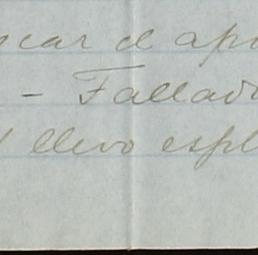 car el apo
- Fallado
llevo espl